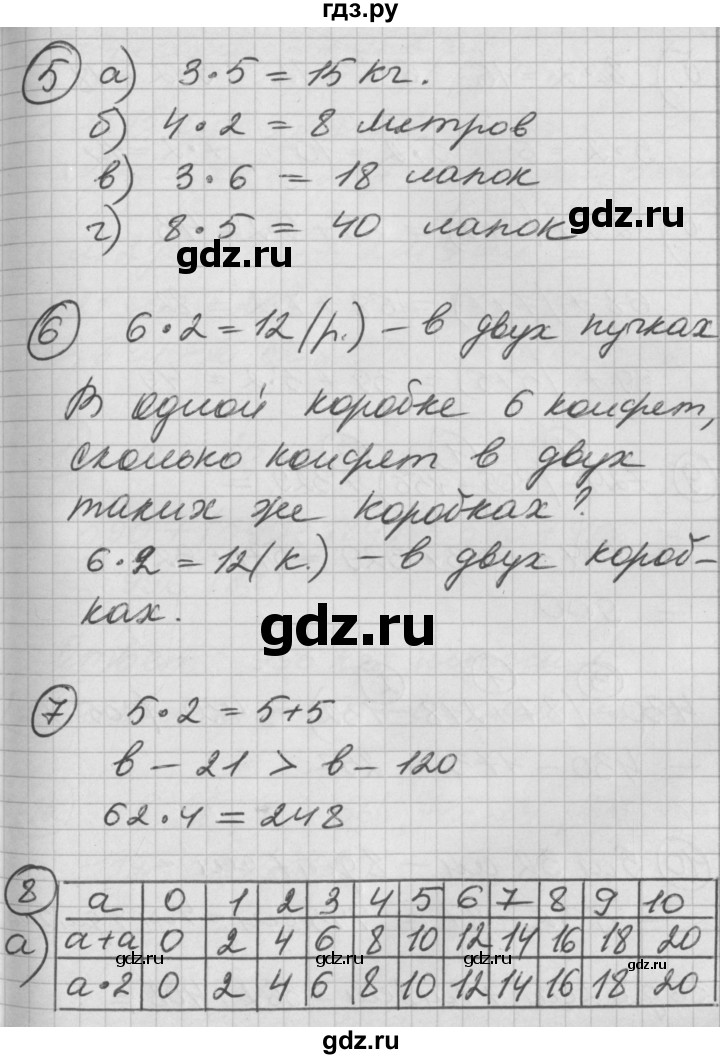 гдз.ру
5 а) 3·5 = 15 кг.
б) 4·2 = 8 метров
в) 3·6 = 18 лапок
г) 8·5 = 40 лапок
gdz.ru
gdz.ru
6 6·2 = 12 (р.) – в двух пучках
В одной коробке 6 конфет,
сколько конфет в двух
таких же коробках?
6·2 = 12 (к.) – в двух короб-
ках.
gdz.ru
7 5·2 = 5+5
в – 21 > в – 120
62·4 = 248
8 а 0 1 2 3 4 5 6 7 8 9 10
а) а+а 0 2 4 6 8 10 12 14 16 18 20
gdz.ru gdz.ru gdz.ru
а·2 0 2 4 6 8 10 12 14 16 18 20
gdz.ru